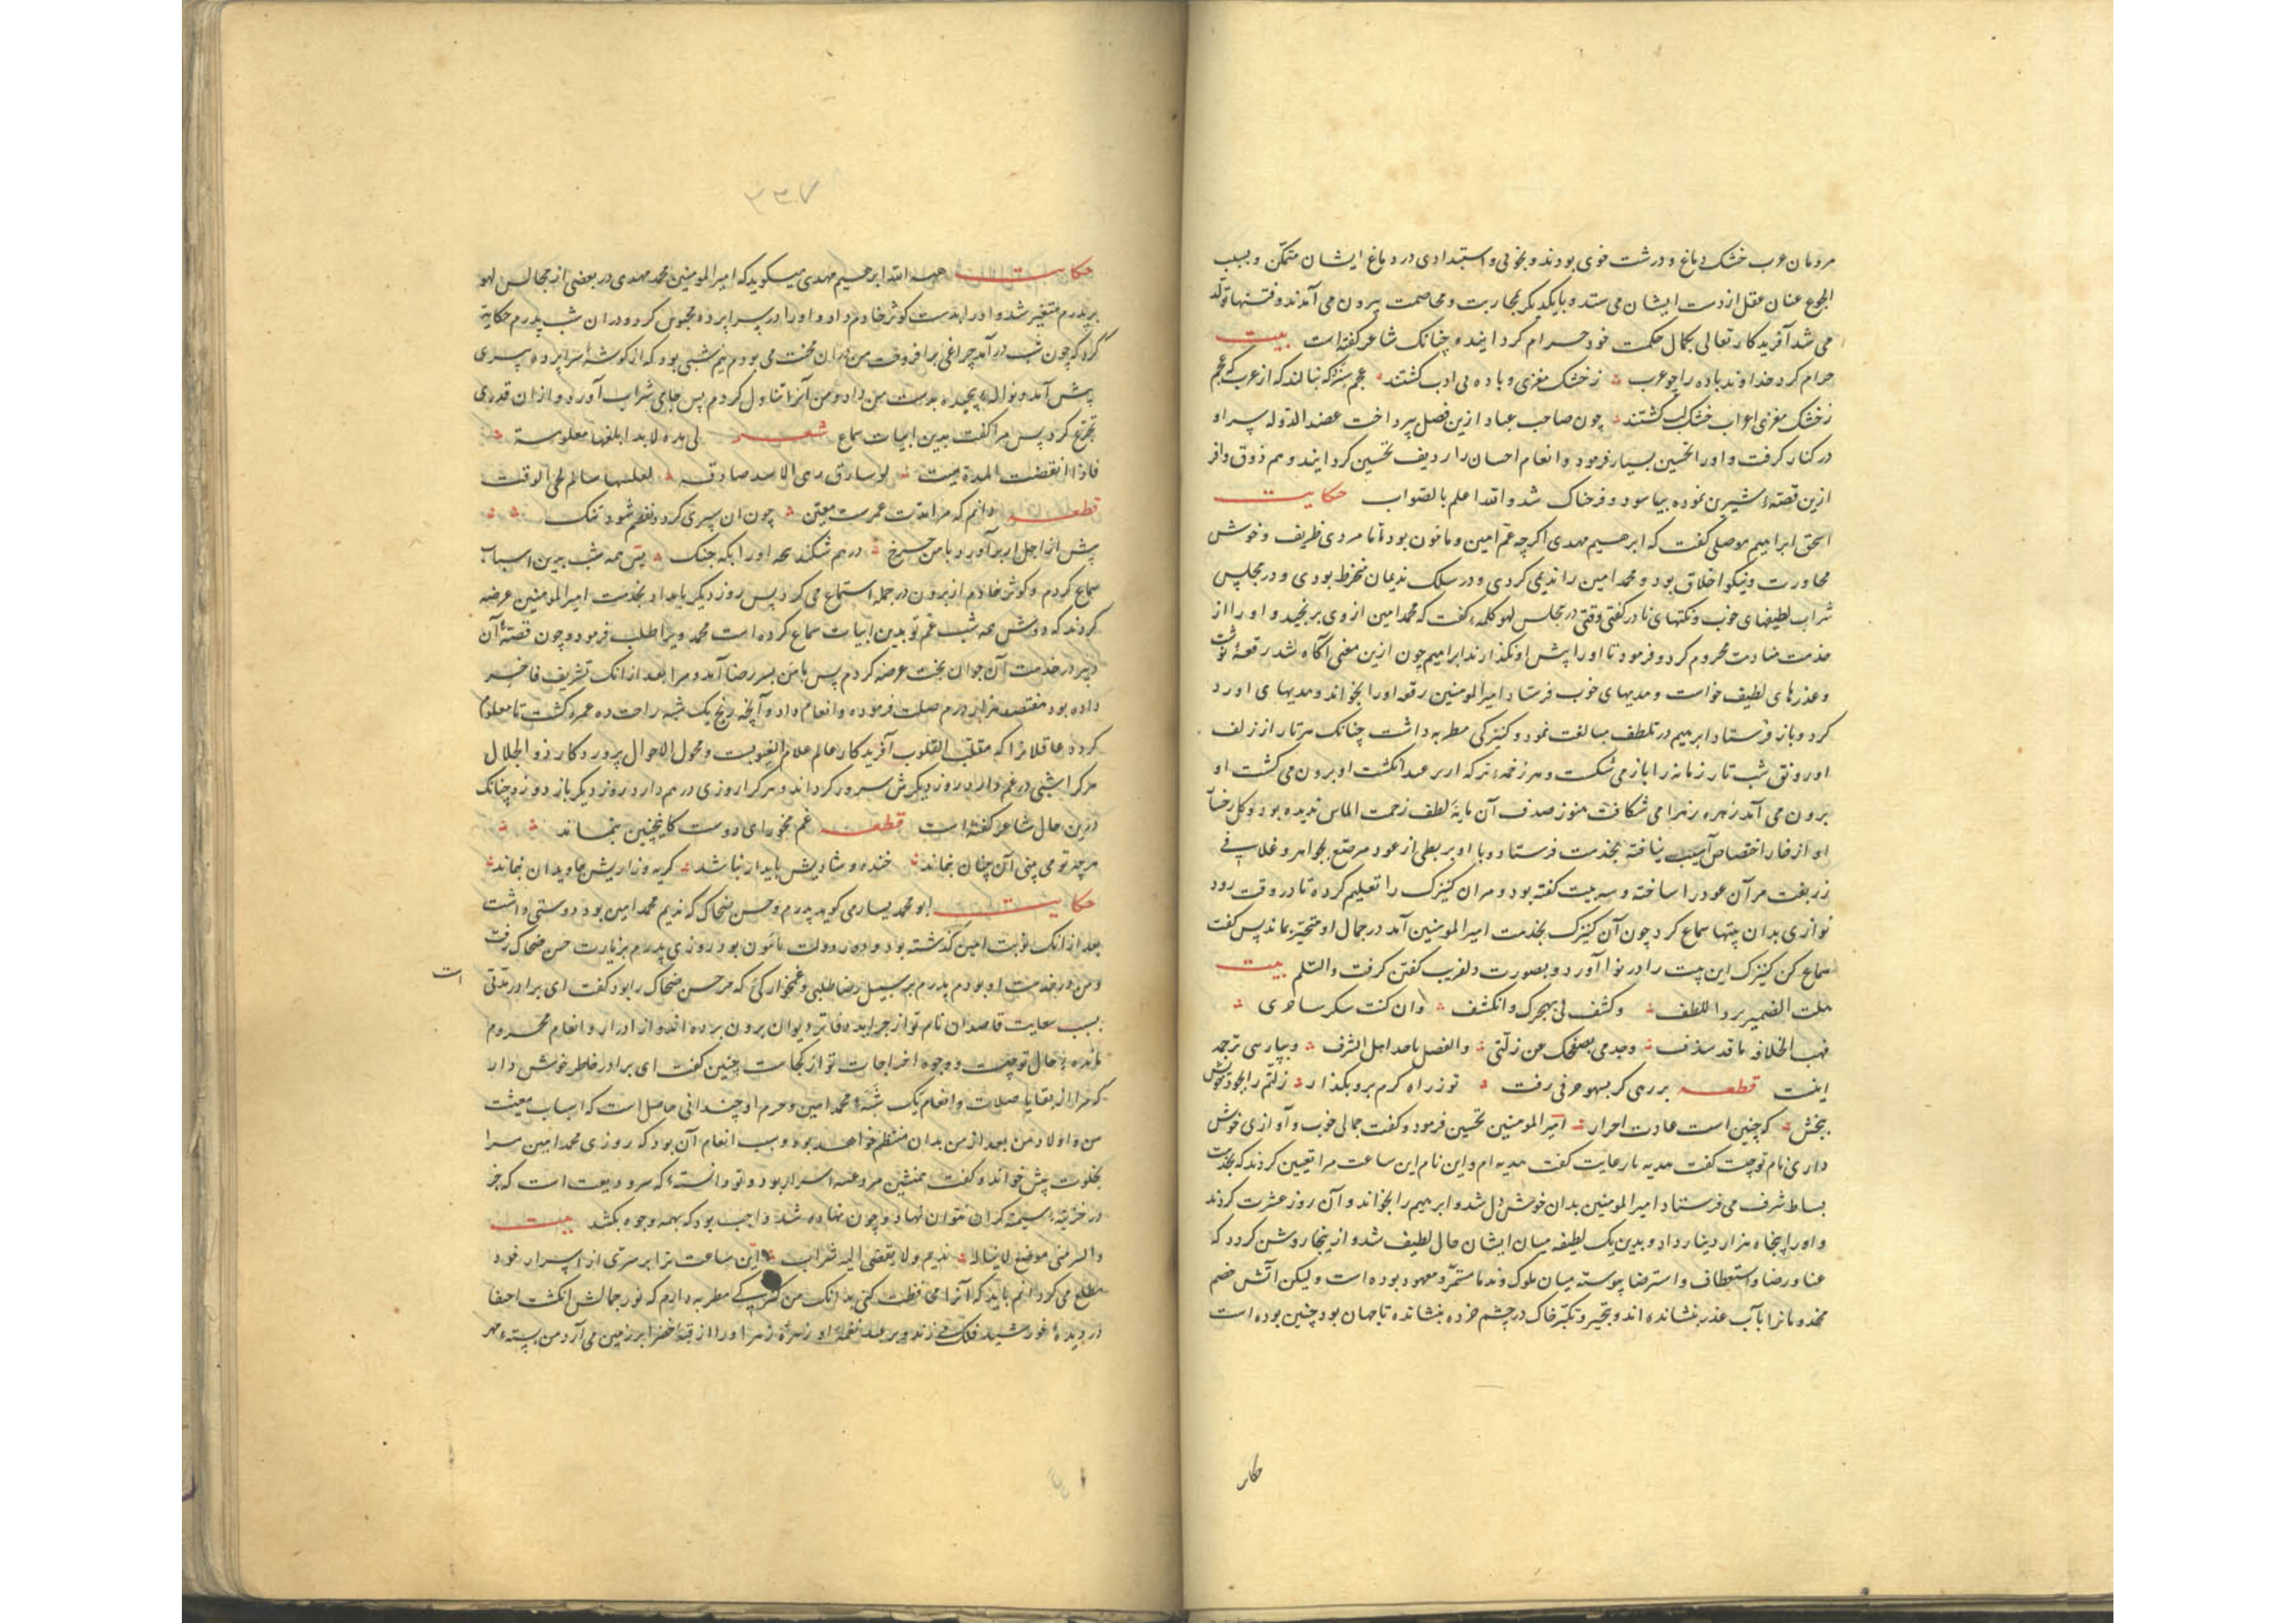 مردمان عرب خشک دماغ و درشت خوی بودند و بخوئی و استبدادی در دماغ ایشان متمکن و بسبب
عنان عقل از دست ایشان می ستد و بایکدیکر بمحاربت و مخاصمت بیرون می آمدند و فتنها تولد
می شد آفریدکار تعالی بکمال حکمت خود حرام کردانید و چنانک شاعر کفته است بیت
حرام کرد خداوند باده را چو عرب ز خشک مغزی و باده بی ادب کشتند عجم سزد که ننالند که از عرب که عجم
ز خشک مغزی اعراب خشک لب کشتند چون صاحب عباد ازین فصل پرداخت عضد الدوله سر او
در کنار کرفت و اورا تحسین بسیار فرمود و انعام احسان را ردیف تحسین کردانید و هم ذوق وافر
ازین قصهٔ شیرین نموده بیاسود و فرحناک شد والله اعلم بالصواب حکایت
اسحق ابراهیم موصلی کفت که ابرهیم مهدی اکرچه عم امین و مامون بود اما مردی ظریف و خوش
محاورت و نیکو اخلاق بود و محمد امین را ندیمی کردی و در سلک ندیمان منخرط بودی و در مجلس
شراب لطیفهای خوب و نکتهای نادر کفتی وقتی در مجلس لهو کلمهٔ کفت که محمد امین از وی برنجید و اورا از
خدمت منادمت محروم کرد و فرمود تا اورا پیش او نکذارند ابراهیم چون ازین معنی آکاه شد رقعهٔ نوشت
و عذرهای لطیف خواست و هدیهای خوب فرستاد امیر المومنین رقعه اورا بخواند و هدیهای او رد
کرد و باز فرستاد ابرهیم در تلطف مبالغت نمود و کنیزکی مطربه داشت چنانک هر تار از زلف
او رونق شب تار زمانه را باز می شکست و هر زخمه که از سر عبد انکشت او برون می کشت او
برون می آمد زهره زهرا می شکافت هنوز صدف آن مایهٔ لطف زحمت الماس ندیده بود و کل رخسار
او از خار اختصاص آسیب نیافته بخدمت فرستاد و با او بربطی از عود مرصع بجواهر و غلافی
زربفت مر آن عود را ساخته و سه بیت کفته بود و مر ان کنیزک را تعلیم کرده تا در وقت رود
نوازی بدان بیتها سماع کرد چون آن کنیزک بخدمت امیر المومنین آمد در جمال او متحیر بماند پس کفت
سماع کن کنیزک این بیت را در نوا آورد و بصورت دلفریب کفتن کرفت والسلم بیت
الضمیر برد اللطف وکشف لی بهجرک وانکشف وان کنت
فهب الخلافه ما قد سلف وجد می بصفحک عن زلتی والفضل یاحد اهل الشرف و بپارسی ترجمه
اینست قطعه بر رهی کر بسهو حرفی رفت تو ز راه کرم برو بکذار زلتم را بجود خویش
ببخش که چنین است عادت احرار امیر المومنین تحسین فرمود و کفت جمالی خوب و آوازی خوش
داری نام تو چیست کفت هدیه بار عایت کفت هدیه ام و این نام این ساعت مرا تعیین کردند که بخدمت
بساط شرف می فرستاد امیر المومنین بدان خوش دل شد و ابرهیم را بخواند و آن روز عشرت کردند
و اورا پنجاه هزار دینار داد و بدین یک لطیفه میان ایشان حال لطیف شد و ازینجا روشن کردد که
عنا و رضا و استعطاف و استرضا پیوسته میان ملوک و ندما مستمر و معهود بوده است و لیکن آتش خصم
مخدومانرا بآب عذر بنشانده اند و تجبر و تکبر خاک در چشم خرده بنشانده تا جهان بود چنین بوده است
حکایـ
۳۳۷
حکایت هبة الله ابرهیم مهدی میکوید که امیر المومنین محمد مهدی در بعضی از مجالس لهو
بر پدرم متغیر شد و اورا بدست کوثر خادم داد و اورا در سرا پرده محبوس کرد و در ان شب پدرم حکایت
کرد که چون شب در آمد چراغی برافروخت من در ان محنت می بودم نیم شبی بود که از کوشهٔ سرا پرده پسری
پیش آمد و نوالهٔ پیچیده بدست من داد و من آنرا تناول کردم پس جای شراب آورد و از ان قدری
تجرع کرد پس مرا کفت بدین ابیات سماع شعر لی مده لابد ابلغها معلومة
فاذا انقضت المدة میت لو ساورنی الاسد لعلنها سالم لحی الوقت
قطعه دانم که مرا مدت عمرست معین چون ان سپری کردد و نظم شود تنک
پیش از اجل ار بر آورد با من چرخ در هم شکند همه اورا بکه جنک پس همه شب بدین اسباب
سماع کردم و کوثر خادم از برون در جمله استماع می کرد پس روز دیکر بامداد بخدمت امیر المومنین عرضه
کردند که دوش همه شب عم تو بدین ابیات سماع کرده است محمد ویرا طلب فرمود و چون قصهٔ آن
در خدمت آن جوان بخت عرضه کردم پس با من بسر رضا آمد و مرا بعد از انک تشریف فاخر
داده بود هفتصد هزار درم صلت فرموده و انعام داد و آنچه رنج یک شبه راحت ده عمره کشت تا معلوم
کردد عاقلانرا که مقلب القلوب آفریدکار عالم علام الغیوبست و محول الاحوال پروردکار ذو الجلال
هرکرا شبی در غم دارد روز دیکرش مسرور کرداند و هرکرا روزی در هم دارد روز دیکر باز دوزد چنانک
درین حال شاعر کفته است قطعه غم مخور ای دوست کاینچنین بنماند
هرچه تو می بینی آن چنان نماند خنده و شادیش پایدار نباشد کریه و زاریش جاویدان نماند
حکایت ابو محمد یسار می کوید پدرم و حسن ضحاک که ندیم محمد امین بود دوستی داشت
بعد از انک نوبت امین کذشته بود و دور دولت مامون بود روزی پدرم بزیارت حسن ضحاک رفت
و من در خدمت او بودم پدرم بر سبیل رضا طلبی و غمخوارکی که مر حسن ضحاک را بود کفت ای برادر مدتی
است
بسبب سعایت قاصدان نام تو از جراید دفاتر دیوان برون برده اند و از ادرار و انعام محروم
مانده حال تو چیست و وجوه اخراجات تو از کجاست چنین کفت ای برادر خاطر خوش دار
که مرا از بقایا صلات و انعام یک شبهٔ محمد امین و حرم او چندانی حاصل است که اسباب معیشت
من و اولاد من بعد از من بدان منتظم خواهد بود و سبب انعام آن بود که روزی محمد امین مرا
بخلوت پیش خواند و کفت همنشین مرد عیبه اسرار بود و تو دانستهٔ که سر ودیعت است که جز
در خزینهٔ سینه کران نتوان نهاد و چون نهاده شد واجب بود که بهمه وجوه بکشد بیت
والسر منی موضع لا یناله ندیم ولا یفضی الیه شراب این ساعت ترا بر سری از اسرار خود
مطلع می کردانم باید که آنرا محافظت کنی بدانک من کنیزکی مطربه دارم که نور جمالش انکشت اخفا
در دیدهٔ خورشید فلک می زند و بر عبد نغمهٔ او زهرهٔ زهرا اورا از قبهٔ خضرا بر زمین می آرد من بسته مهر